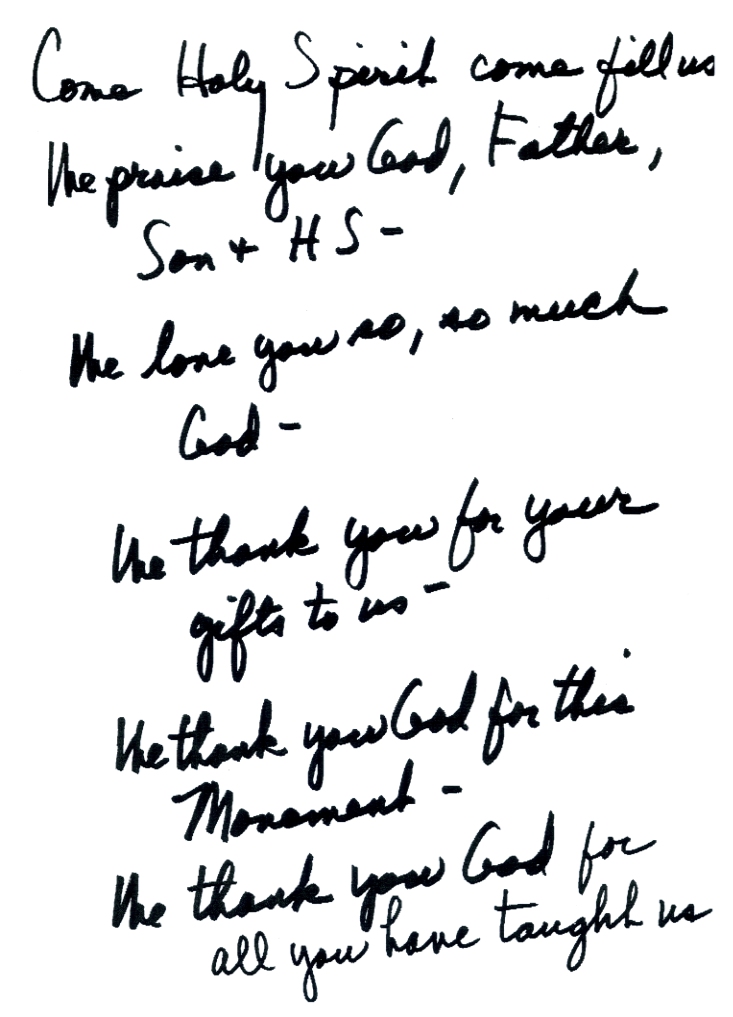 Come Holy Spirit come fill us
We praise you God, Father,
Son + HS -
We love you so, so much
God -
We thank you for your
gifts to us -
We thank you God for this
Movement -
We thank you God for
all you have taught us